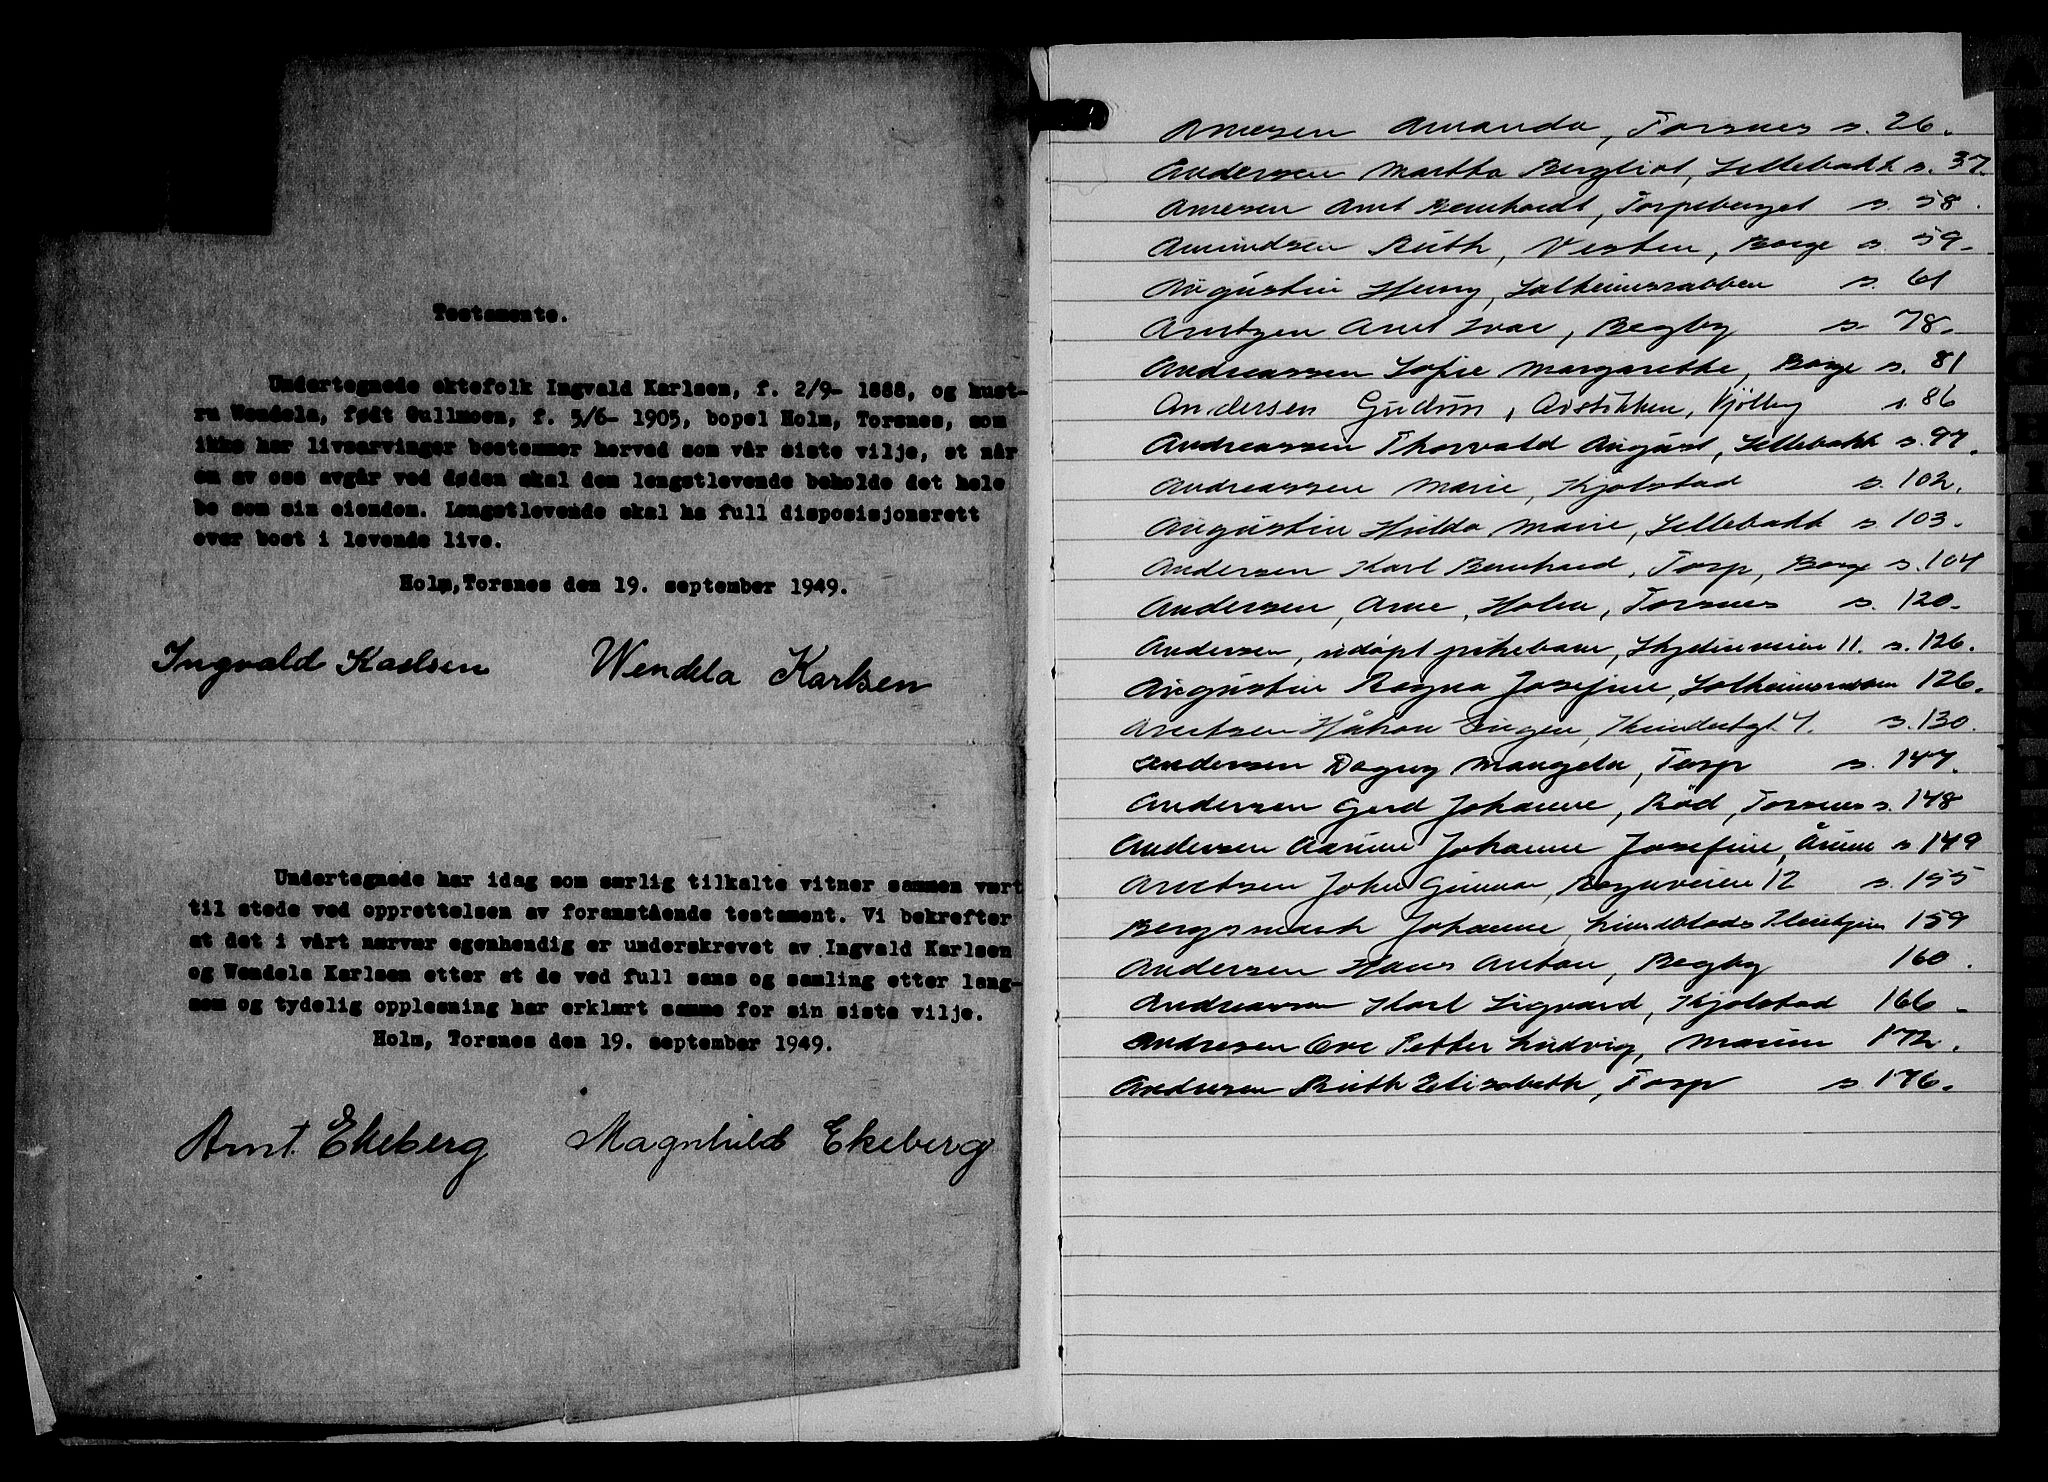 Testamente.
Undertegnede ektefolk Ingvald Karlsen, f. 2/9- 1888, og hust-
ru Wendela, født Gullmoen, f. 5/6- 1905, bopel Holm, Torsnes, som
ikke har livsarvinger bestemmer herved som vår siste vilje, at når
en av oss avgår ved døden skal den lengstlevende beholde det hele
bo som sin eiendom. Lengstlevende skal ha full disposisjonsrett
over boet i levende live.
Holm, Torsnes den 19. september 1949.
Ingvald Karlsen Wendela Karlsen
Undertegnede har idag som særlig tilkalte vitner sammen vært
til stede ved opprettelsen av foranstående testament. Vi bekrefter
at det i vårt nærvær egenhendig er underskrevet av Ingvald Karlsen
og Wendela Karlsen etter at de ved full sans og samling etter lang-
som og tydelig opplesning har erklært samme for sin siste vilje.
Holm, Torsnes den 19. september 1949.
Arnt Ekeberg Magnhild Ekeberg
Arnesen Amanda, Torsnes s. 26.
Andersen Martha Bergliot, Sellebakk s. 37.
Arnesen Arnt Bernhardt, Torpeberget s. 58.
Amundsen Ruth, Vesten, Borge s. 59.
Augustin Henry, Solheimsrabben s. 61
Arntzen Arnt Ivar, Begby s 78.
Andreassen Sofie Margarethe, Borge s. 81
Andersen Gudrun, Kjølby s 86
Andreassen Thorvald August, Sellebakk s. 97.
Andreassen Marie, Kjølstad s. 102.
Augustin Hulda Marie, Sellebakk s 103.
Andersen Karl Bernhard, Torp, Borge s. 104
Andersen, Arne, Holm, Torsnes s. 120.
Andersen, udøpt pikebarn, 11. s. 126.
Augustin Ragna Josefine, 126.
Arntsen Håkon 4. s. 130.
Andersen Dagny Mangela, Torp s. 147.
Andersen Gerd Johanne, Rød, Torsnes s. 148
Andersen Johanne Josefine, Årum s 149
Arntsen John Gunnar, 12 s. 155
Bergsmark Johanne, 159
Andersen Hans Anton, Begby 160.
Andreassen Karl Sigvard, Kjølstad 166
Andresen Ove Petter Ludvig, 172.
Andresen Ruth Elisabeth, Torp s. 176.